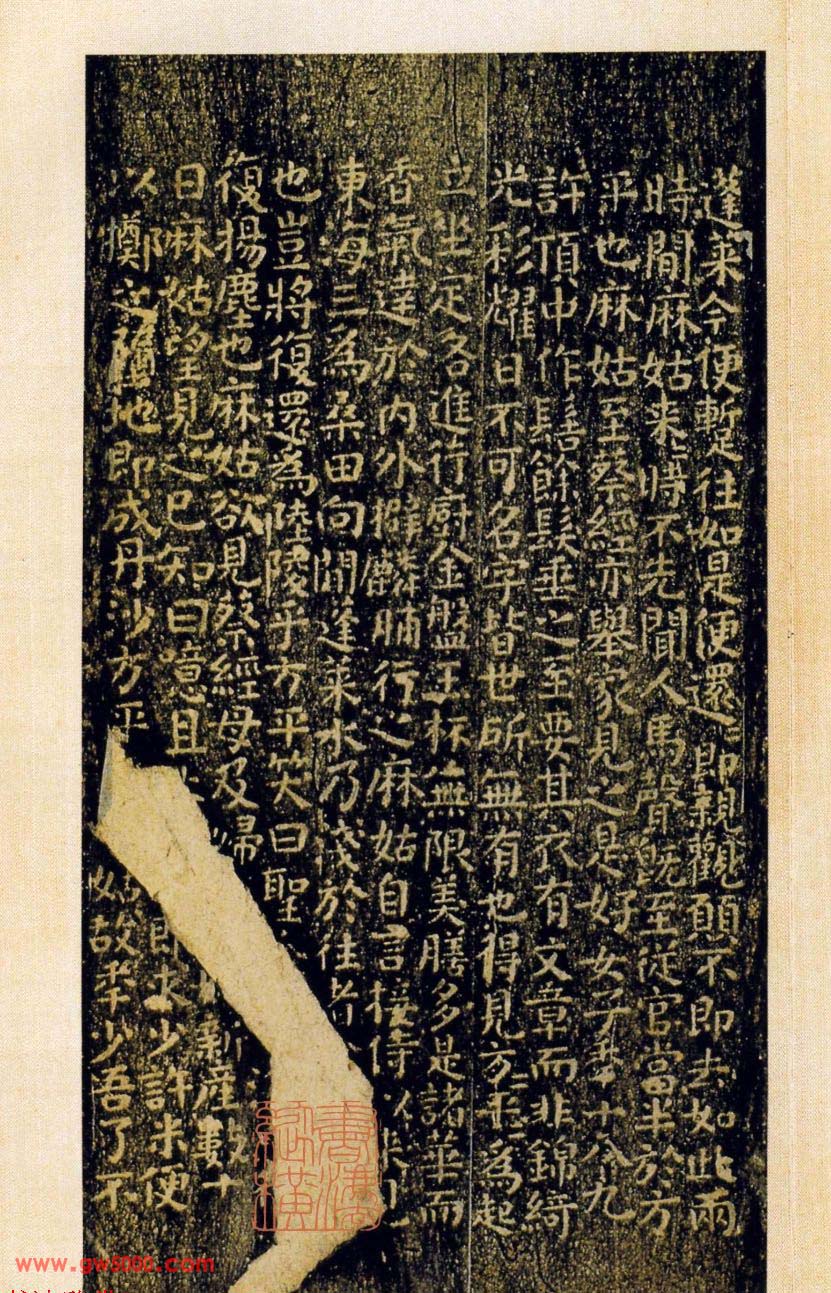 蓬萊今便暫往如是便還還即親覲願不即去如此兩
時間麻姑來來時不先聞人馬聲既至從官當半於方
平也麻姑至蔡經亦舉家見之是好女子年十八九
許頂中作髻餘髮垂之至要其衣有文章而非錦綺
光彩耀日不可名字皆世所無有也得見方平方平為起
立坐定各進行廚金盤玉杯無限美膳多是諸華而
香氣達於內外擗麟脯行之麻姑自言接侍以來
東海三為桑田向間蓬萊水乃淺於往者
也豈將復還為陸陵乎方平笑曰聖
復揚塵也麻姑欲見蔡經母及婦 新產數十
日麻姑望見之已知曰噫且 即求少許米便
以擲之墮地即成丹沙方平 姑故年少吾了不
www.gw5000.com